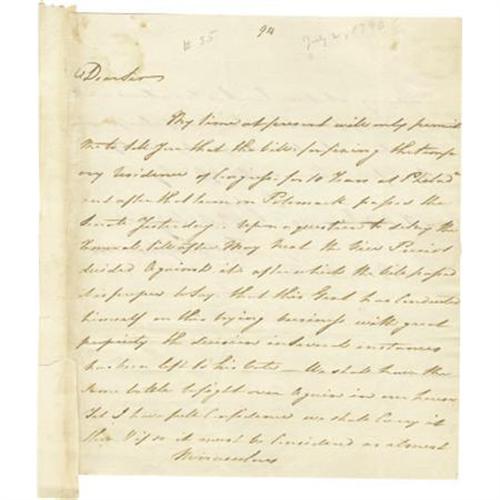 94
# 35
July 2, 1790
Dear Sir
My time at present will only permit
me to tell you that the bill for fixing the temp
ory residence of Congress for 10 Years at Philada
and after that time on Potomack passed the
Senate Yesterday - upon a question to delay the
removal till after May next the Vice Presidt
decided against it after which the bill passed
it is proper to say that this Gent has conducted
himself on this trying business with great
propriety the decision in several instances
has been left to his Vote - We shall have the
same battle to fight over again in our house
Yet I have full Confidence we shall Carry it
this
it must be Considered as almost
Miraculous